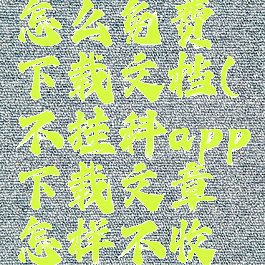 怎么免费
下载文档(
不挂科app
下载文章
怎样不收